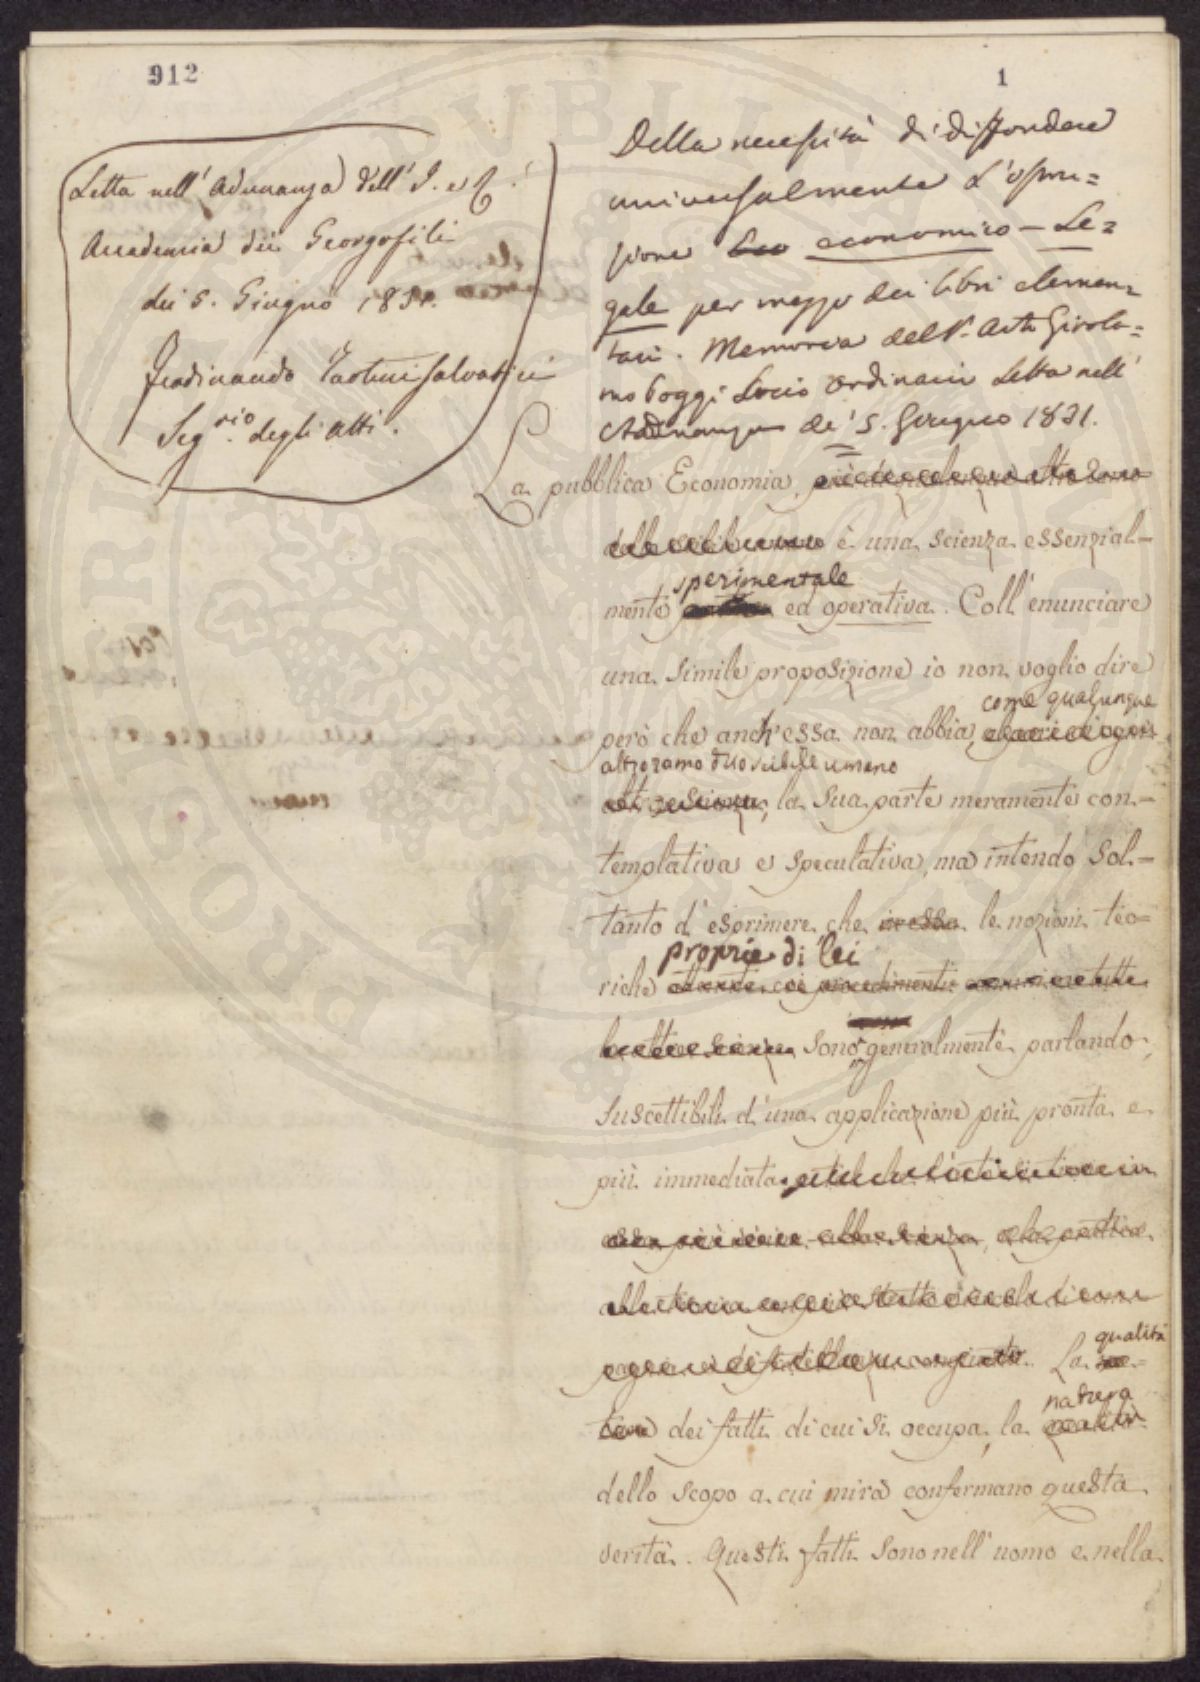 912
1
Letta nell' Adunanza dell' I. e R.
Accademia dei Georgofili
dei 5. Giugno 1831.
Ferdinando Tartini Salvatici
Seg.rio degli Atti.
Della necessità di diffondere
universalmente L'istru=
zione economico-Le=
gale per mezzo dei libri elemen=
tari. Memoria dell' Girola=
mo Poggi Socio ordinario Letta nell'
Adunanza de' 5. Giugno 1831.
La pubblica Economia,
è una scienza essenzial-
sperimentale
mente ed operativa. Coll' enunciare
una simile proposizione io non voglio dire
come qualunque
però che anch' essa non abbia
altro ramo dello scibile umano
la sua parte meramente con-
templativa e speculativa, ma intendo sol-
tanto d' esprimere che in essa le nozioni teo-
proprie di lei
riche
sono generalmente parlando,
suscettibili d' una applicazione più pronta e
più immediata.
qualità
La
natura
dei fatti di cui si occupa, la
dello scopo a cui mira confermano questa
verità. Questi fatti sono nell' uomo e nella